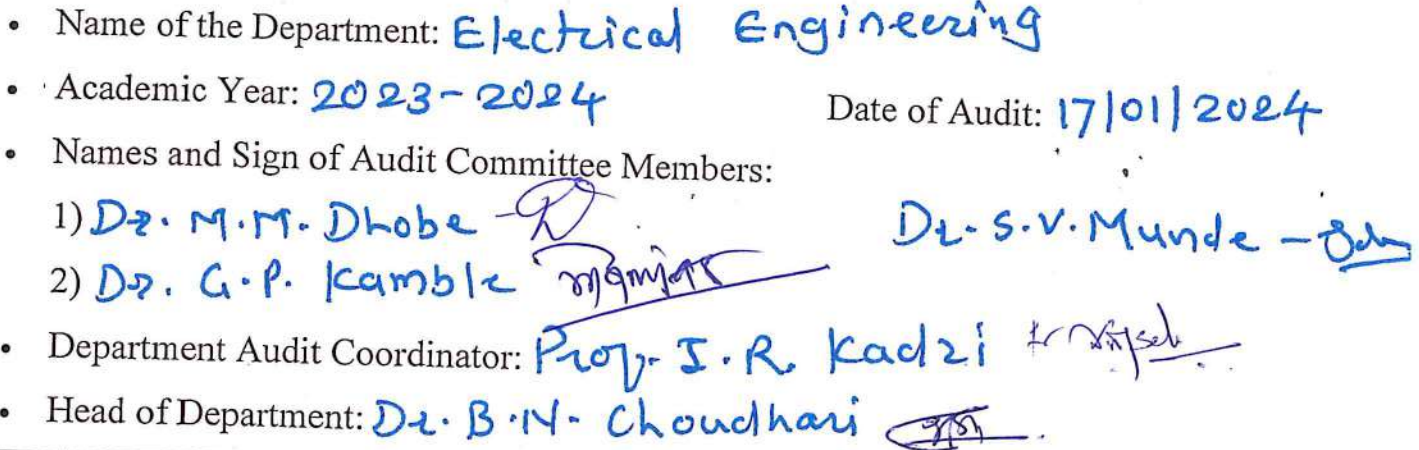 • Name of the Department: Electrical Engineering
• Academic Year: 2023-2024 Date of Audit: 17/01/2024
• Names and Sign of Audit Committee Members:
1) Dr. M.M. Dhobe - Dr. S.V. Munde -
2) Dr. G.P. Kamble
• Department Audit Coordinator: Prof. I.R. Kadri
• Head of Department: Dr. B.N. Choudhari